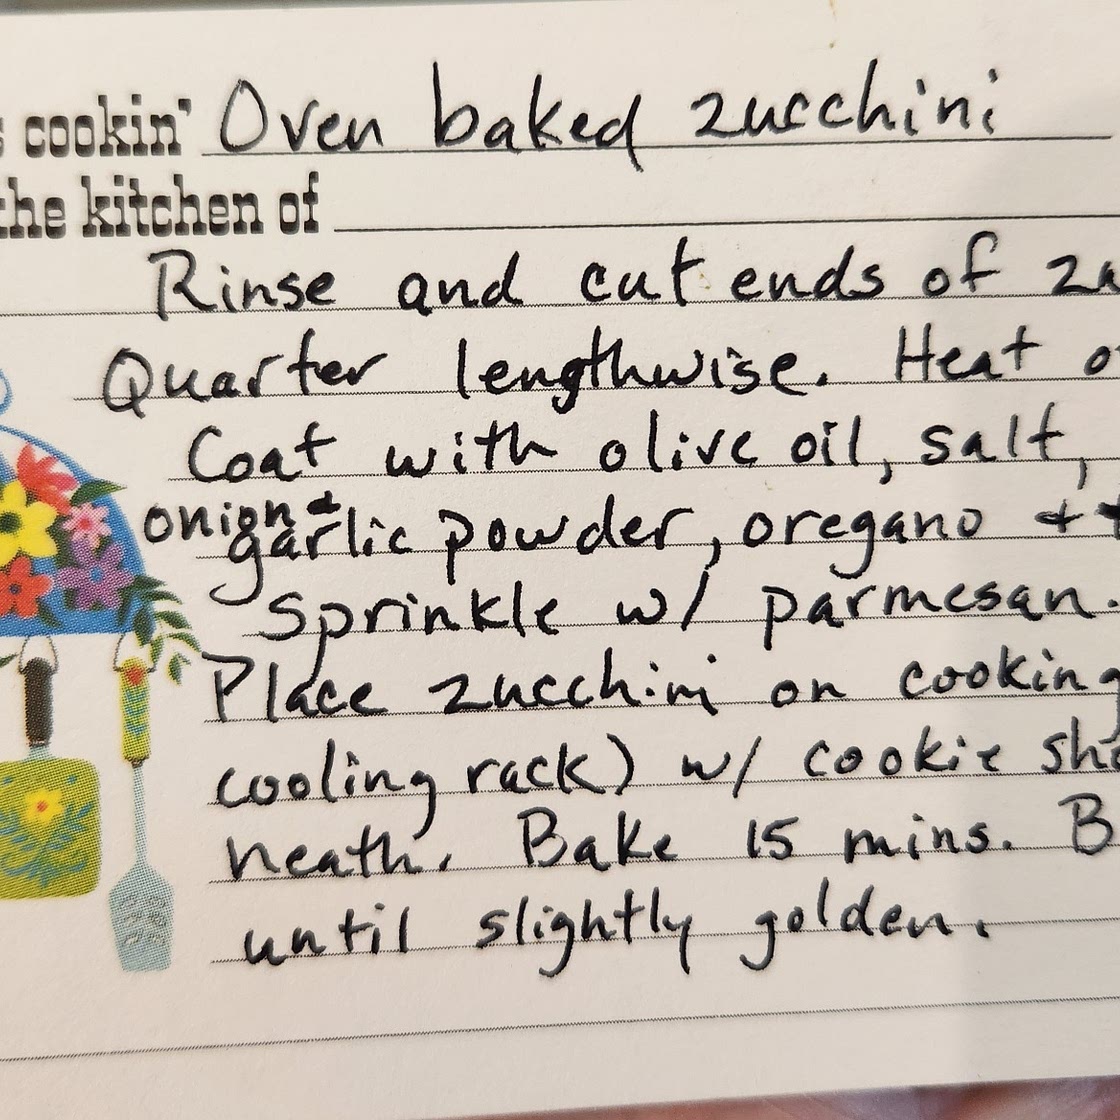 cookin' Oven baked zucchini
the kitchen of
Rinse and cut ends of
Quarter lengthwise. Heat
Coat with olive oil, salt,
onion &
garlic powder, oregano +
Sprinkle w/ parmesan.
Place zucchini on cooking
cooling rack) w/ cookie
neath. Bake 15 mins.
until slightly golden.